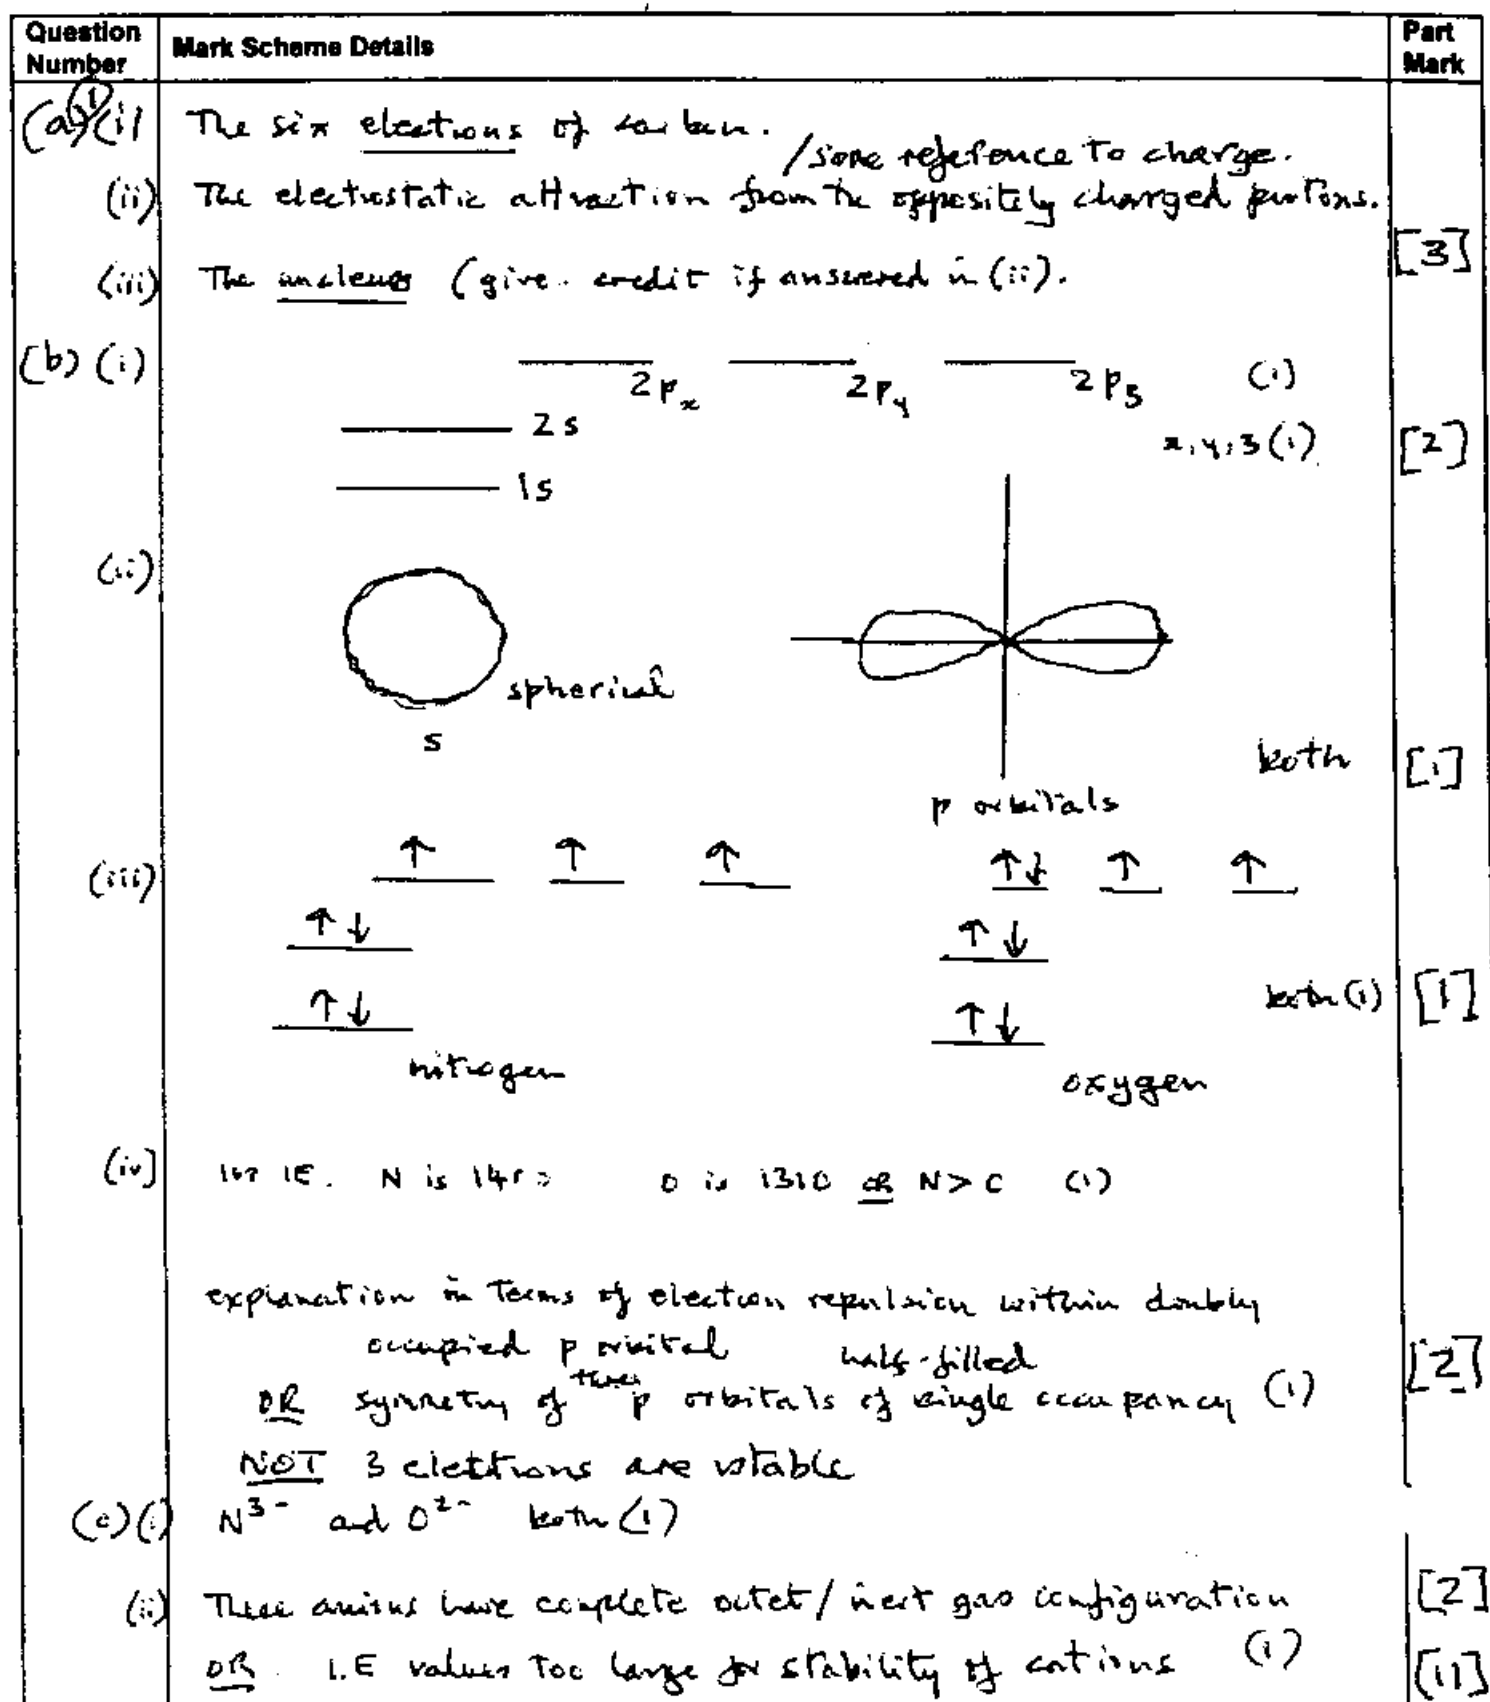 Question Number
Mark Scheme Details
Part Mark
1
(a) (i) The six electrons of carbon.
/some reference to charge.
(ii) The electrostatic attraction from the oppositely charged protons.
[3]
(iii) The nucleus (give credit if answered in (ii).
(b) (i)
2px 2py 2pz (1)
2s
x, y, z (1) [2]
1s
(ii)
spherical
s
both [1]
p orbitals
(iii) ↑ ↑ ↑ ↑↓ ↑ ↑
↑↓ ↑↓
both (1) [1]
↑↓ ↑↓
nitrogen
oxygen
(iv) 1st IE. N is O is 1310 OR N > (1)
explanation in terms of electron repulsion within doubly
occupied p orbital half-filled
[2]
OR symmetry of three p orbitals of single occupancy (1)
NOT 3 electrons are stable
(c) (i) N³⁻ and O²⁻ both (1)
(ii) These anions have complete octet / inert gas configuration [2]
OR I.E values too large for stability of cations (1) [11]